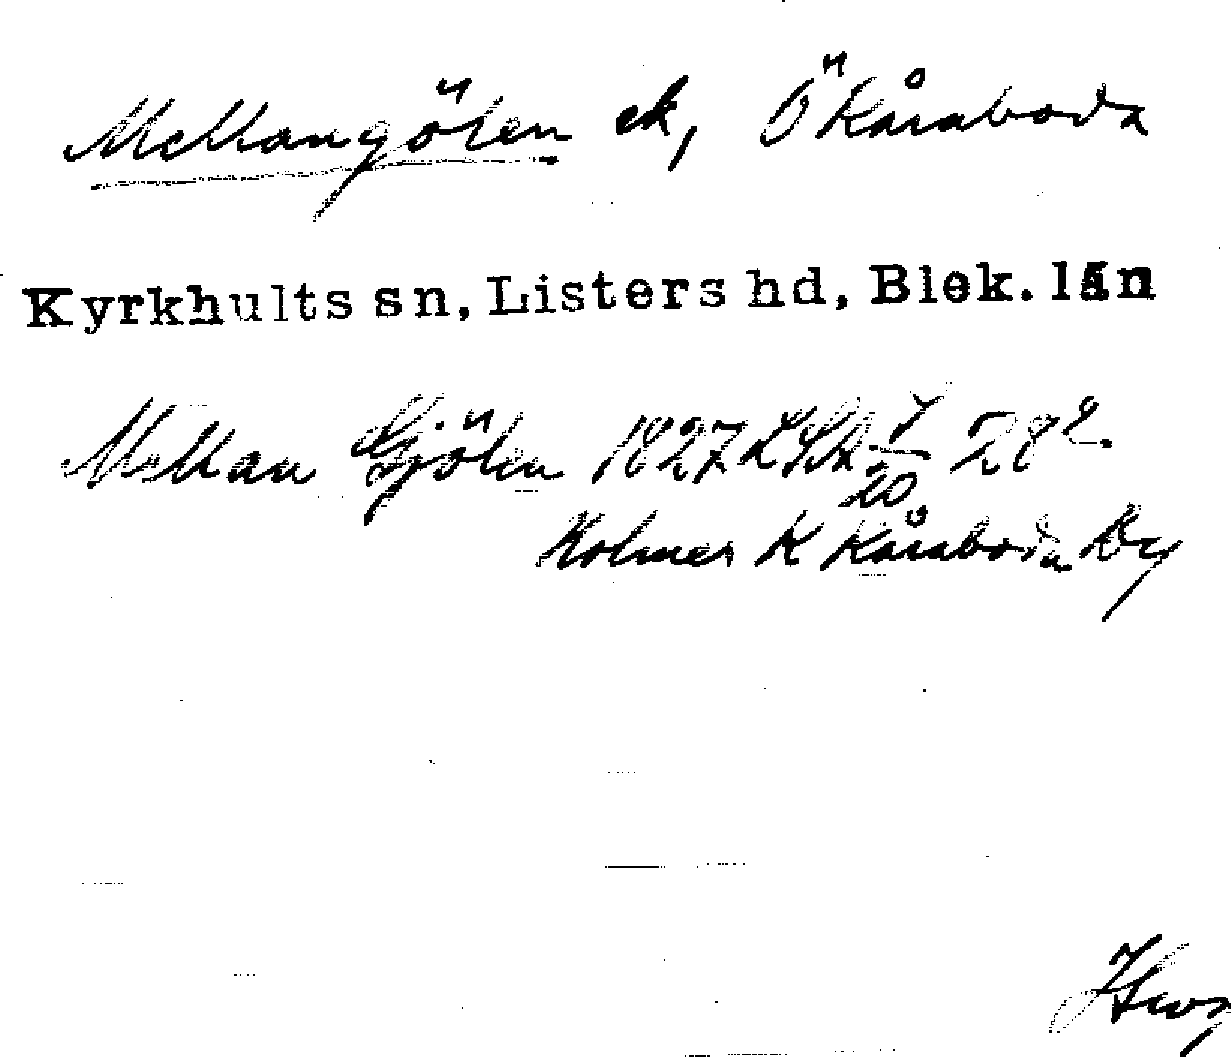 Mellangölen ek, Ö Kåraboda
Kyrkhults sn, Listers hd, Blek. län
Mellan Gjölen 1827 LSA 28
Kolmer K Kåraboda By